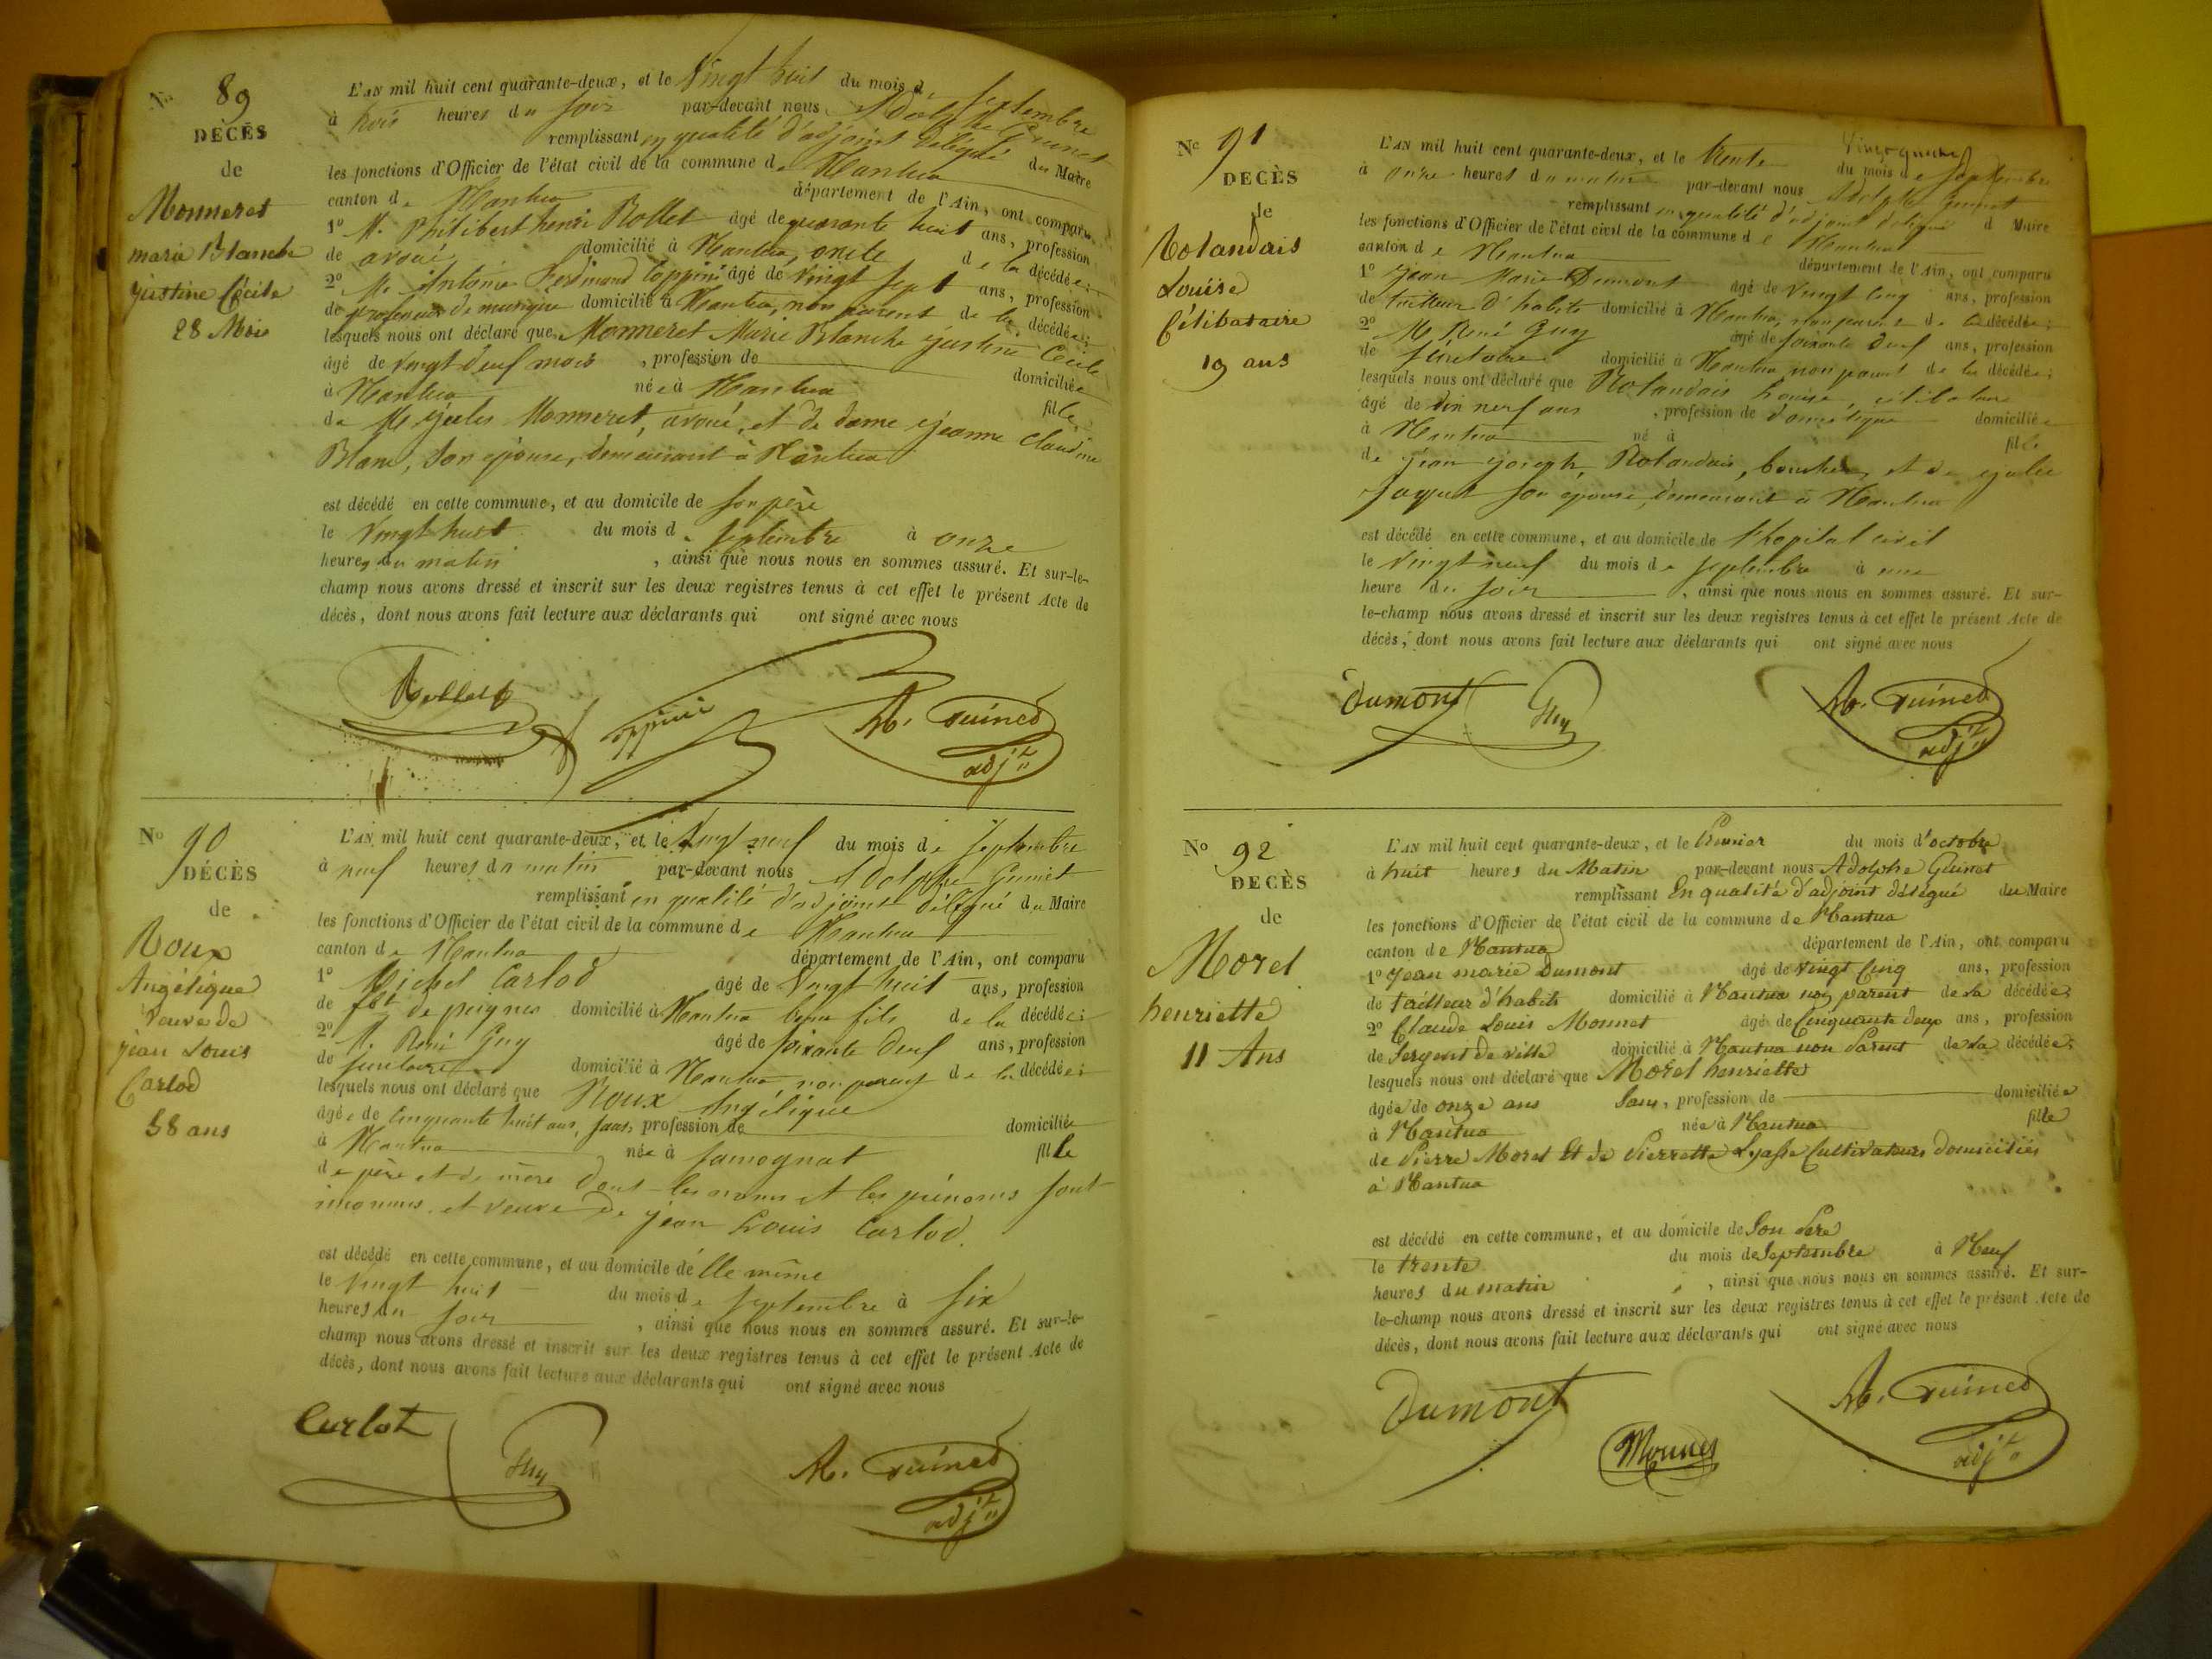 No 89
DÉCÈS
de
Monneret
marie Blanche
justine Cécile
28 Mois
L'AN mil huit cent quarante-deux, et le Vingt huit du mois de septembre
à trois heures du soir par-devant nous Adolphe Guinet
remplissant en qualité d'adjoint délégué du Maire
les fonctions d'Officier de l'état civil de la commune de Nantua
canton de Nantua département de l'Ain, ont comparu
1º M. Philibert henri Rollet âgé de quarante huit ans, profession
de avoué domicilié à Nantua, oncle de la décédée;
2º M. Antoine Ferdinand Coppini âgé de vingt sept ans, profession
de professeur de musique domicilié à Nantua, non parent de la décédée;
lesquels nous ont déclaré que Monneret Marie Blanche justine Cécile
âgé de vingt huit mois , profession de domiciliée
à Nantua née à Nantua fille
de M. jules Monneret, avoué, et de dame jeanne claudine
Blanc, son épouse, demeurant à Nantua
est décédé en cette commune, et au domicile de son père
le Vingt huit du mois de septembre à onze
heures du matin , ainsi que nous nous en sommes assuré. Et sur-le-
champ nous avons dressé et inscrit sur les deux registres tenus à cet effet le présent Acte de
décès, dont nous avons fait lecture aux déclarants qui ont signé avec nous
Rollet Coppini A. Guinet
adjt
No 90
DÉCÈS
de
Roux
Angélique
Veuve de
jean Louis
Carlod
58 ans
L'AN mil huit cent quarante-deux, et le Vingt neuf du mois de septembre
à neuf heures du matin par-devant nous Adolphe Guinet
remplissant en qualité d'adjoint délégué du Maire
les fonctions d'Officier de l'état civil de la commune de Nantua
canton de Nantua département de l'Ain, ont comparu
1º Michel Carlod âgé de Vingt huit ans, profession
de fbt de peignes domicilié à Nantua beau fils de la décédée;
2º M. René Guy âgé de soixante deuf ans, profession
de domicilié à Nantua non parent de la décédée;
lesquels nous ont déclaré que Roux Angélique
âgée de cinquante huit ans, sans, profession de domiciliée
à Nantua née à Samognat fille
de père et de mère dont les noms et les prénoms sont
inconnus. et veuve de jean Louis Carlod.
est décédé en cette commune, et au domicile d'elle même
le vingt huit du mois de septembre à six
heures du soir , ainsi que nous nous en sommes assuré. Et sur-le-
champ nous avons dressé et inscrit sur les deux registres tenus à cet effet le présent Acte de
décès, dont nous avons fait lecture aux déclarants qui ont signé avec nous
Carlot Guy A. Guinet
adjt
No 91
DÉCÈS
de
Rolandais
Louise
Célibataire
19 ans
L'AN mil huit cent quarante-deux, et le trente du mois de septembre
à onze heures du matin par-devant nous Adolphe Guinet
remplissant en qualité d'adjoint délégué d Maire
les fonctions d'Officier de l'état civil de la commune de Nantua
canton de Nantua département de l'Ain, ont comparu
1º jean Marie Dumont âgé de vingt cinq ans, profession
de tailleur d'habits domicilié à Nantua, non parent de la décédée;
2º M. René Guy âgé de soixante deuf ans, profession
de domicilié à Nantua non parent de la décédée;
lesquels nous ont déclaré que Rolandais Louise, célibataire
âgé de dix neuf ans , profession de domestique domiciliée
à Nantua né à fille
de jean joseph Rolandais, boucher, et de julie
jaquet son épouse, demeurant à Nantua
est décédé en cette commune, et au domicile de l'hopital civil
le vingt neuf du mois de septembre à une
heure du soir , ainsi que nous nous en sommes assuré. Et sur-
le-champ nous avons dressé et inscrit sur les deux registres tenus à cet effet le présent Acte de
décès, dont nous avons fait lecture aux déclarants qui ont signé avec nous
Dumont Guy A. Guinet
adjt
No 92
DÉCÈS
de
Morel
henriette
11 Ans
L'AN mil huit cent quarante-deux, et le Premier du mois d'octobre
à huit heures du Matin par-devant nous Adolphe Guinet
remplissant En qualité d'adjoint délégué du Maire
les fonctions d'Officier de l'état civil de la commune de Nantua
canton de Nantua département de l'Ain, ont comparu
1º Jean marie Dumont âgé de vingt Cinq ans, profession
de tailleur d'habits domicilié à Nantua non parent de la décédée;
2º Claude Louis Monnet âgé de Cinquante deux ans, profession
de Sergent de ville domicilié à Nantua non Parent de la décédée;
lesquels nous ont déclaré que Morel henriette
âgée de onze ans Sans, profession de domiciliée
à Nantua née à Nantua fille
de Pierre Morel Et de Pierrette Cultivateurs domiciliés
à Nantua
est décédé en cette commune, et au domicile de Son Père
le trente du mois de Septembre à Neuf
heures du matin , ainsi que nous nous en sommes assuré. Et sur-
le-champ nous avons dressé et inscrit sur les deux registres tenus à cet effet le présent Acte de
décès, dont nous avons fait lecture aux déclarants qui ont signé avec nous
Dumont Monnet A. Guinet
adjt